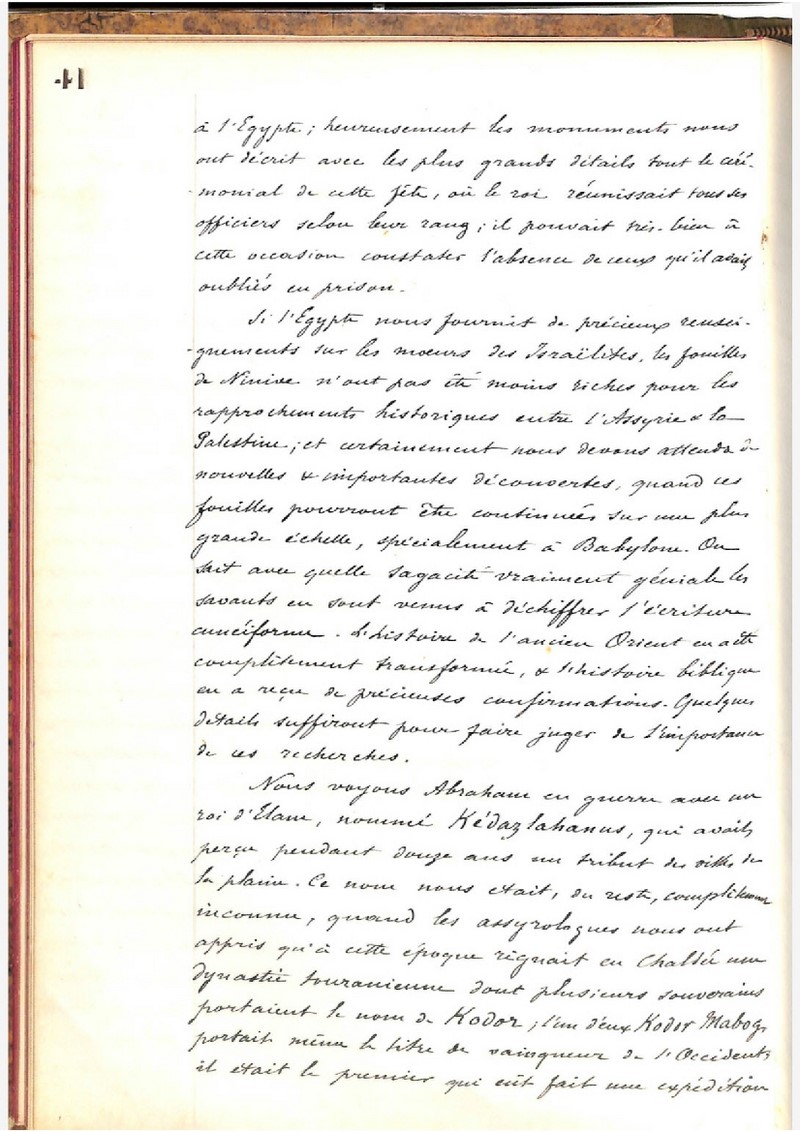 41
à l'Egypte ; heureusement les monuments nous
ont décrit avec les plus grands détails tout le céré-
-monial de cette fête, où le roi réunissait tous ses
officiers selon leur rang ; il pouvait très-bien à
cette occasion constater l'absence de ceux qu'il avait
oubliés en prison.
Si l'Egypte nous fournit de précieux rensei-
-gnements sur les mœurs des Israëlites, les fouilles
de Ninive n'ont pas été moins riches pour les
rapprochements historiques entre l'Assyrie & la
Palestine ; et certainement nous devons attendre de
nouvelles & importantes découvertes, quand ces
fouilles pourront être continuées sur une plus
grande échelle, spécialement à Babylone. On
sait avec quelle sagacité vraiment géniale les
savants en sont venus à déchiffrer l'écriture
cunéiforme. L'histoire de l'ancien Orient en a été
complètement transformée, & l'histoire biblique
en a reçu de précieuses confirmations. Quelques
détails suffiront pour faire juger de l'importance
de ces recherches.
Nous voyons Abraham en guerre avec un
roi d'Elam, nommé Kédazlahanus, qui avait
perçu pendant douze ans un tribut des villes de
la plaine. Ce nom nous était, du reste, complètement
inconnu, quand les assyrologues nous ont
appris qu'à cette époque régnait en Chaldée une
dynastie touranienne dont plusieurs souverains
portaient le nom de Kodor ; l'un d'eux Kodor Mabog,
portait même le titre de vainqueur de l'Occident ;
il était le premier qui eût fait une expédition